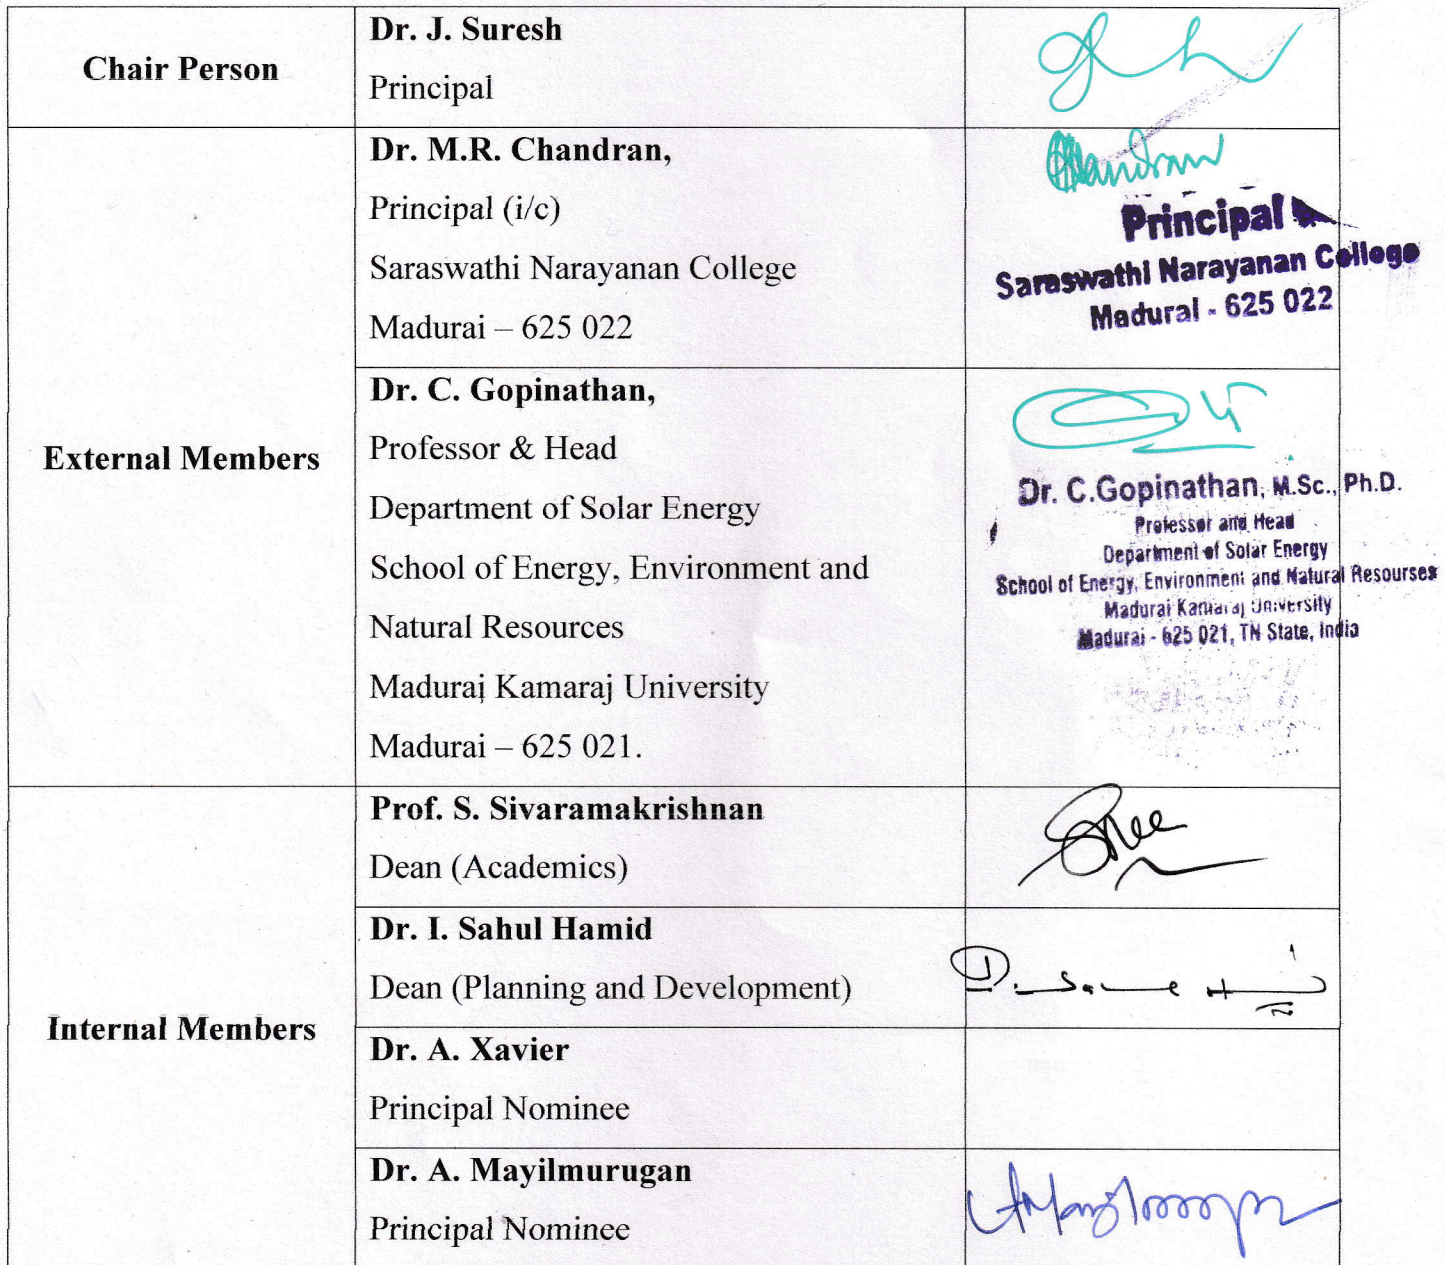 Chair Person
Dr. J. Suresh
Principal
External Members
Dr. M.R. Chandran,
Principal (i/c)
Saraswathi Narayanan College
Madurai – 625 022
Chandran
Principal
Saraswathi Narayanan College
Madurai - 625 022
Dr. C. Gopinathan,
Professor & Head
Department of Solar Energy
School of Energy, Environment and
Natural Resources
Madurai Kamaraj University
Madurai – 625 021.
Dr. C.Gopinathan, M.Sc., Ph.D.
Professor and Head
Department of Solar Energy
School of Energy, Environment and Natural Resourses
Madurai Kamaraj University
Madurai - 625 021, TN State, India
Internal Members
Prof. S. Sivaramakrishnan
Dean (Academics)
Dr. I. Sahul Hamid
Dean (Planning and Development)
Dr. A. Xavier
Principal Nominee
Dr. A. Mayilmurugan
Principal Nominee